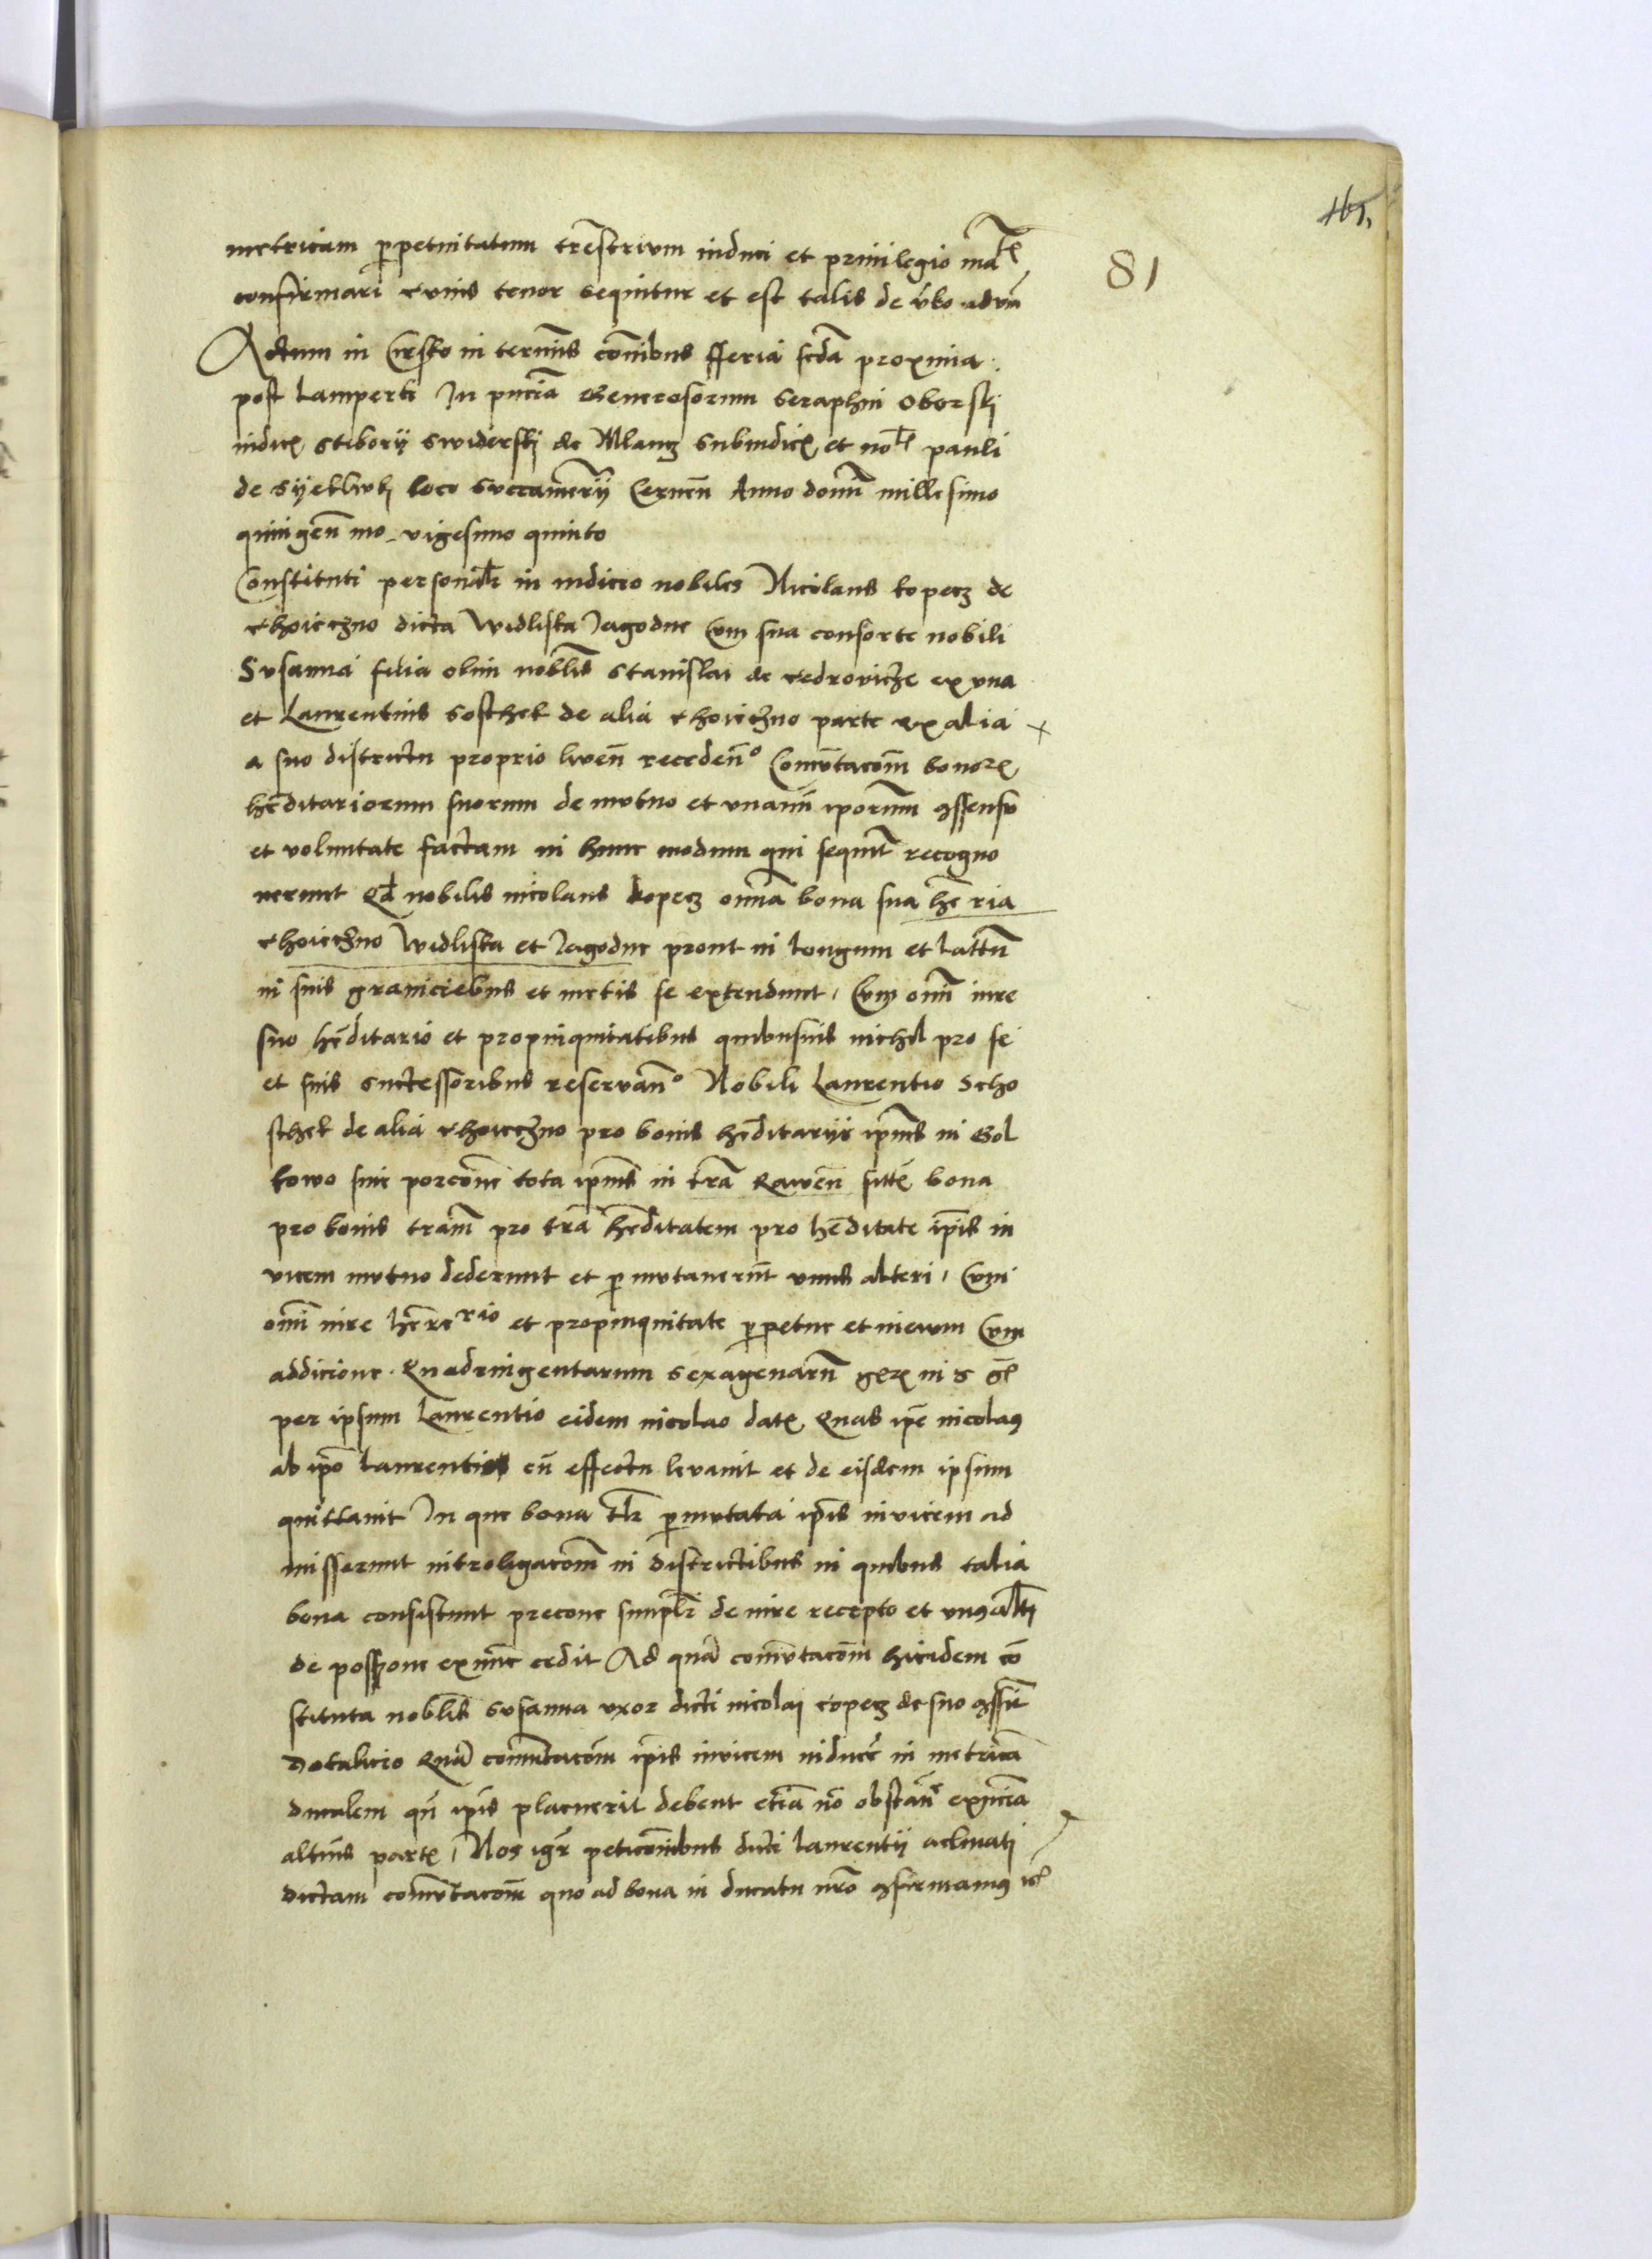 165
81
metricam perpetuitatum trestrium induci et privilegio
confirmari cuius tenor sequitur et est talis de verbo ad verbū
Actum in Cirsko in terminis cōnibus fferia scda proxima
post Lamperti In pn̄cia Generosorum Seraphin Oborskij
iudicis Stiborij Swiderskij de Mlancz Subiudicis et pauli
de loco Succamerij Cernen̄ Anno domī millesimo
quingen̄ mo vigesimo quinto
Constituti personalr in iudicio nobiles Nicolaus kopecz de
choieczno dicta Widliska Jagodne Cum sua consorte nobili
Susanna filia olim noblis Stanislai de cedrovicze ex una
et Laurentius Soschek de alia choieczno parte ex alia
a suo districtu proprio recedeno Comutacōm bonorum
hēditariorum suorum de mutuo et unanimi iporum assensu
et voluntate factam in hunc modum qui sequit recogno
verunt Qd nobilis nicolaus kopecz omnia bona sua hēria
choieczno Widliska et Jagodne prout in longum et lattum
in suis graniciebus et metis se extendunt, Cum omni iure
suo hēditario et propinquitatibus quibusuis nichil pro se
et suis successoribus reservano Nobili Laurentio Scho
schek de alia choieczno pro bonis hēditariis ipius in Gol
kowo sive porcione tota ipius in tra Rawen̄ sitis bona
pro bonis tram pro tra hēditatem pro hēditate ipis in
vicem mutuo dederunt et permutaverūt unus alteri, Cum
omī iure hērerio et propinquitate perpetue et in evum Cum
addicione Quadringentarum sexagenarū
per ipsum Laurentio eidem nicolao datis Quas ipe nicolaus
ab ipo Laurentio cū effectu levavit et de eisdem ipsum
quittavit In que bona tlr permutata ipis invicem ad
misserunt intrōligacōm in districtibus in quibus talia
bona consistunt precone simplr de iure recepto et unus alti
de possione exnunc cedit Ad quā comutacōm hicidem cō
stituta noblis Susanna uxor dicti nicolai copecz de suo
Dotalicio Quā comutacōm ipis invicem inducere in metricā
ducalem qn̄ ipis placuerit debent eciā nō obstān̄
altius partis, Nos igr peticōnibus dicti Laurentii aclinati
dictam comutacōm quo ad bona in ducatu nro cfirmamus